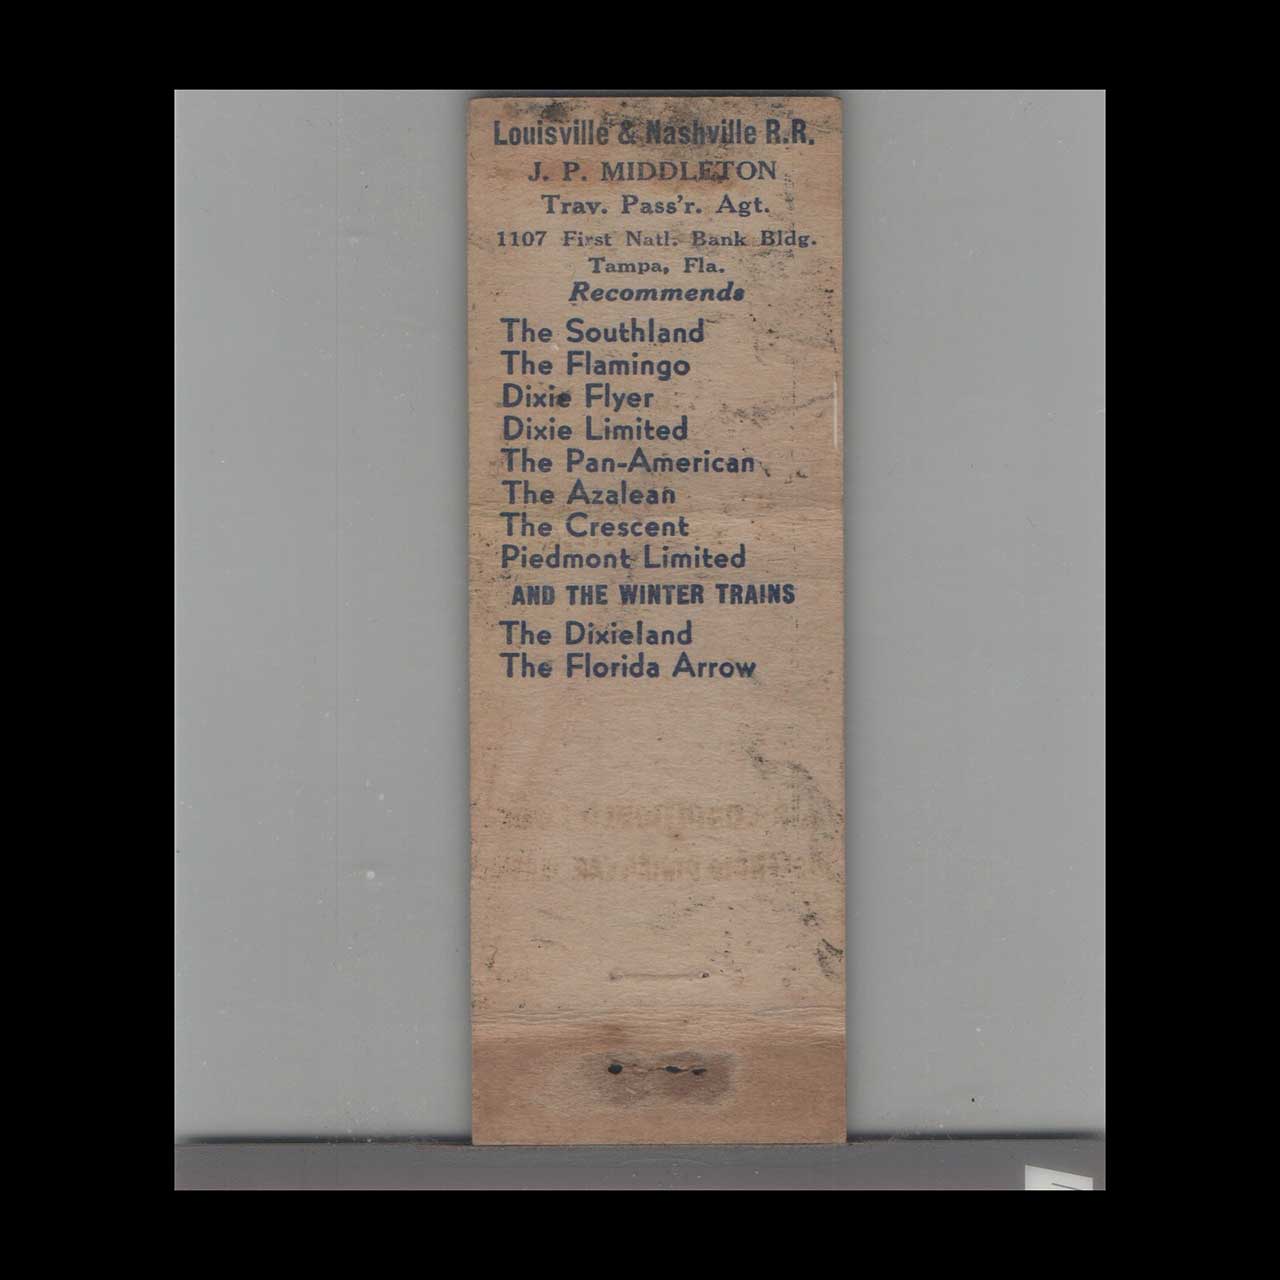 Louisville & Nashville R.R.
J. P. MIDDLETON
Trav. Pass'r. Agt.
1107 First Natl. Bank Bldg.
Tampa, Fla.
Recommends
The Southland
The Flamingo
Dixie Flyer
Dixie Limited
The Pan-American
The Azalean
The Crescent
Piedmont Limited
AND THE WINTER TRAINS
The Dixieland
The Florida Arrow